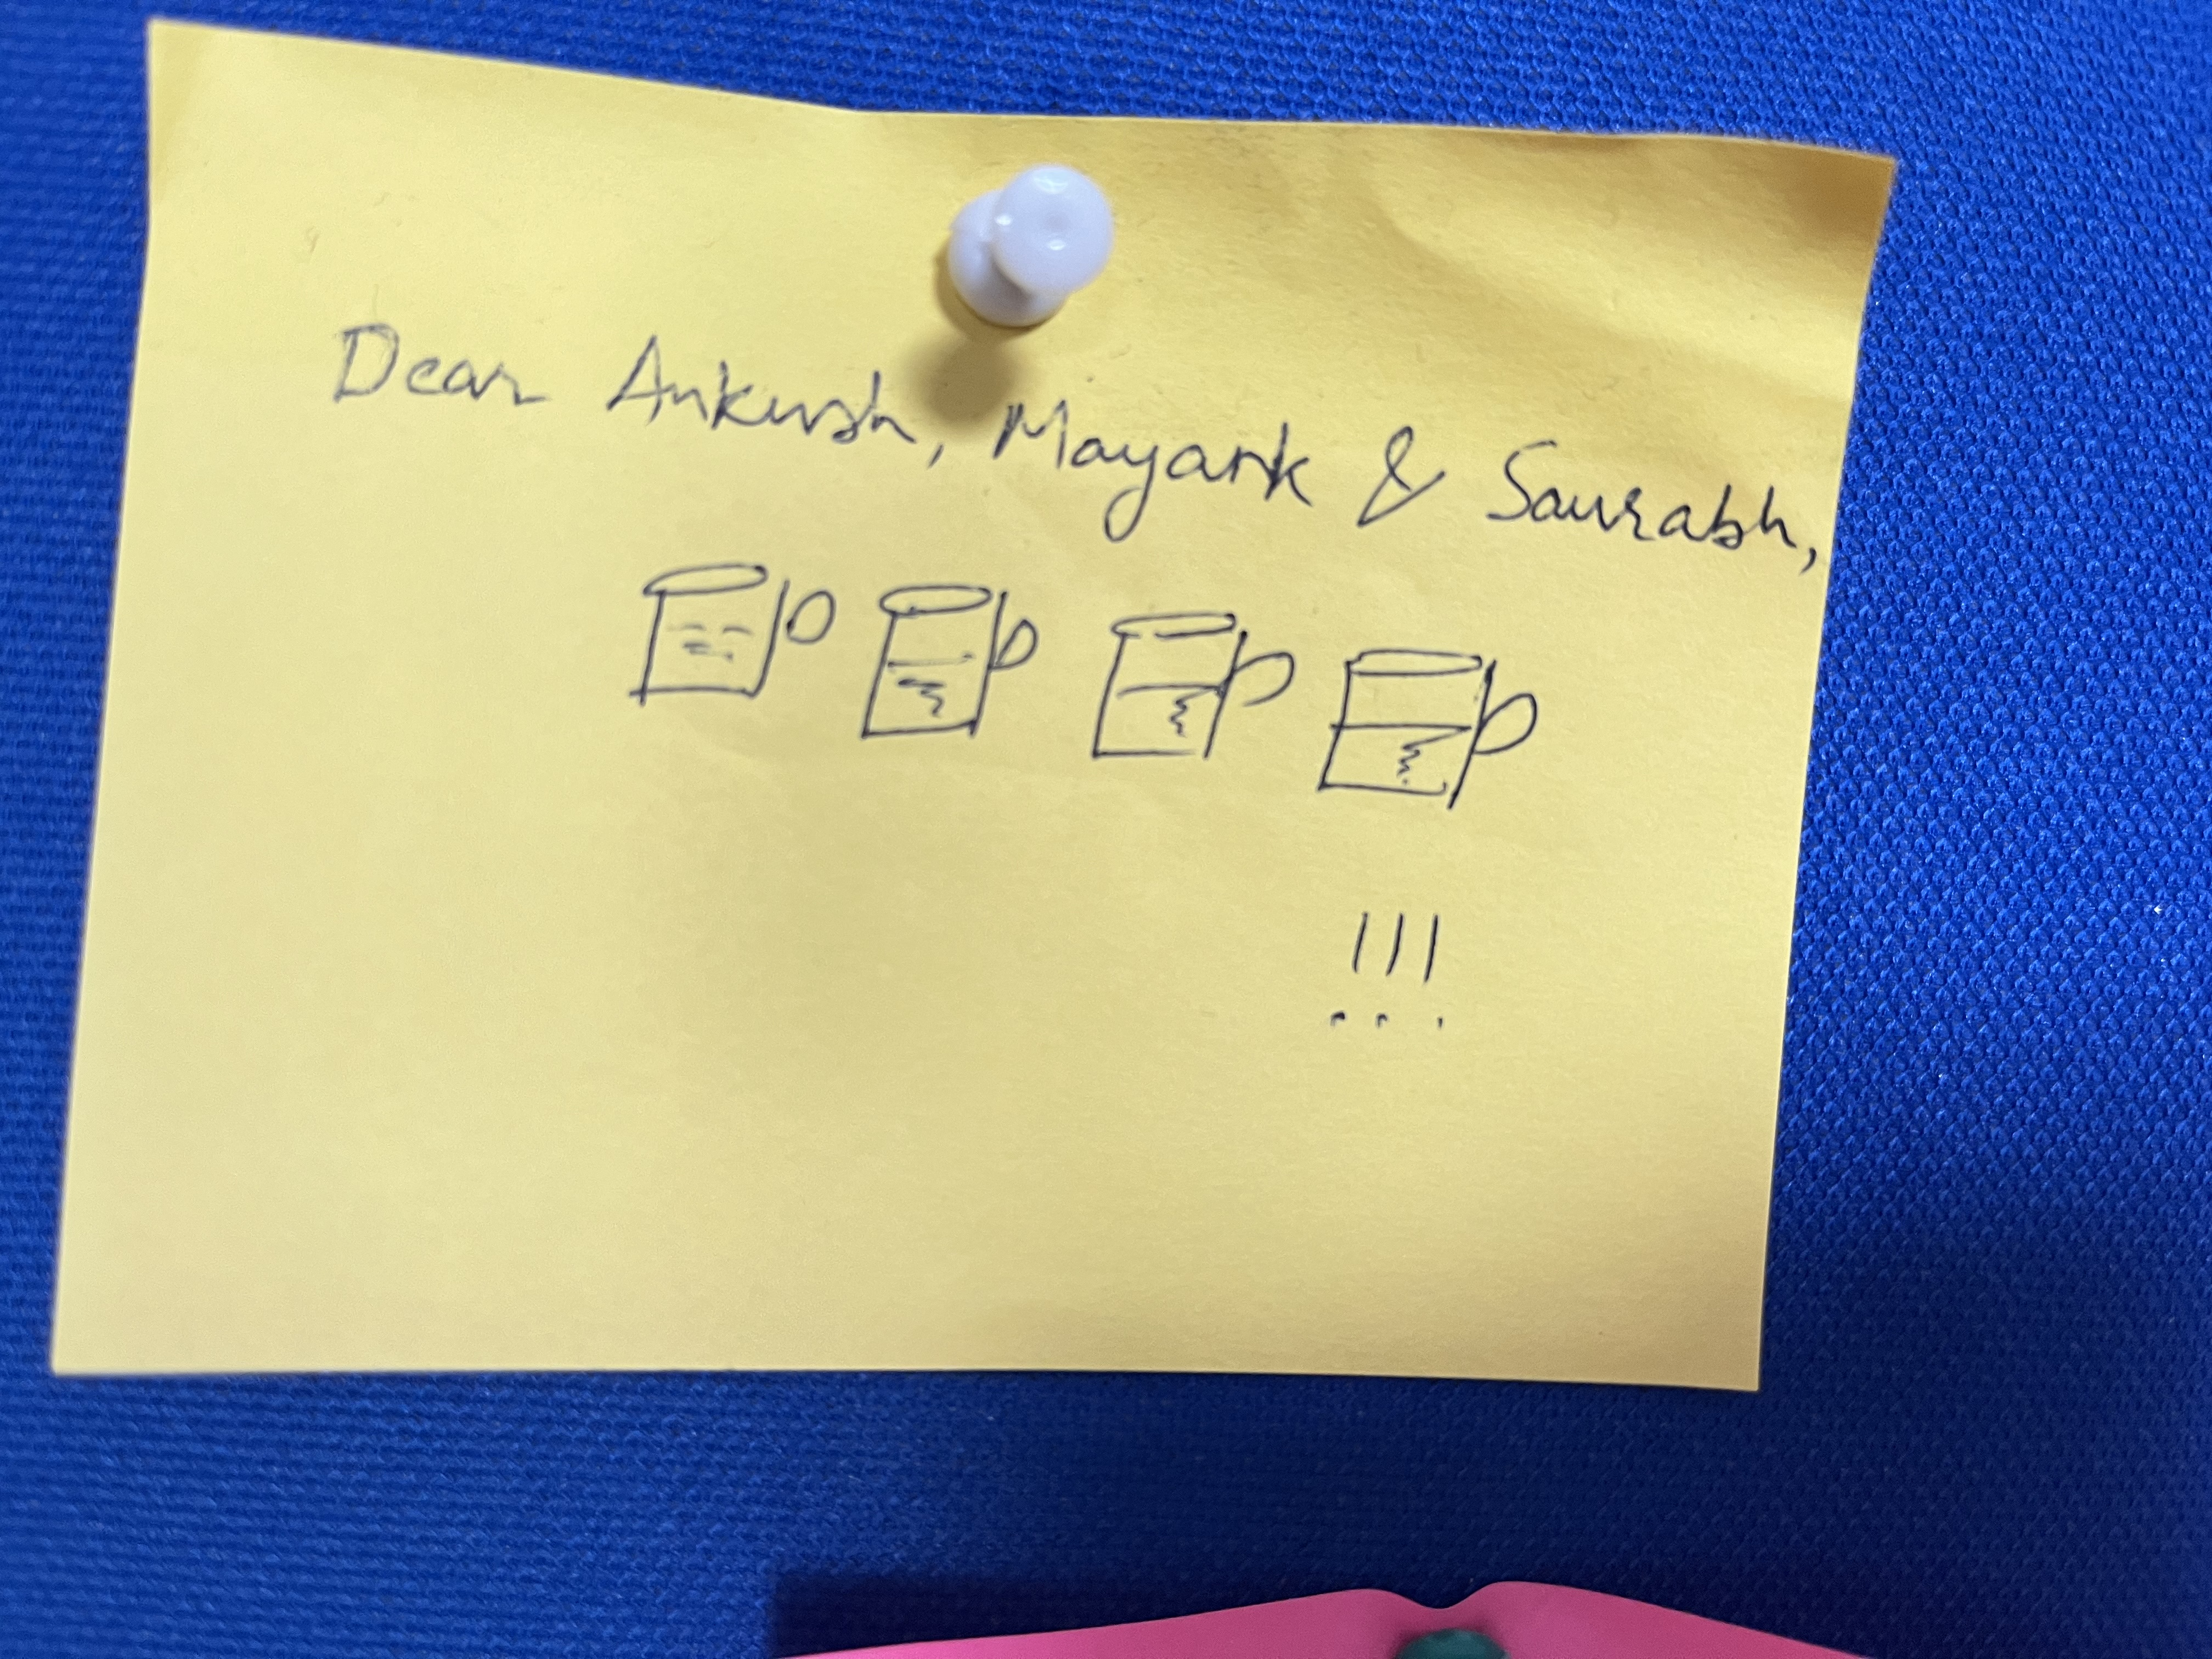 Dear Ankush, Mayank & Saurabh,
!!!